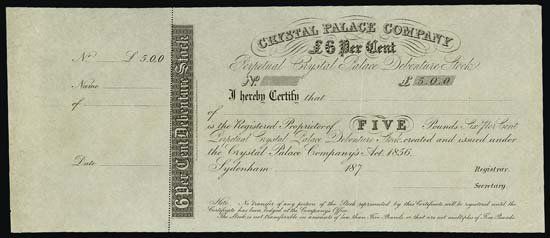 No £ 5.0.0
Name
of
Date
6 Per Cent Debenture Stock
CRYSTAL PALACE COMPANY
£6 Per Cent
Perpetual Crystal Palace Debenture Stock
No. £ 5.0.0
I hereby Certify that
of
is the Registered Proprietor of FIVE Pounds Six Per Cent
Perpetual Crystal Palace Debenture Stock created and issued under
the Crystal Palace Company's Act 1856.
Sydenham 187 Registrar.
Secretary.
Note. No transfer of any portion of the Stock represented by this Certificate will be registered until the
Certificate has been lodged at the Company's Office.
The Stock is not transferable in amounts of less than Five Pounds or that are not multiples of Five Pounds.